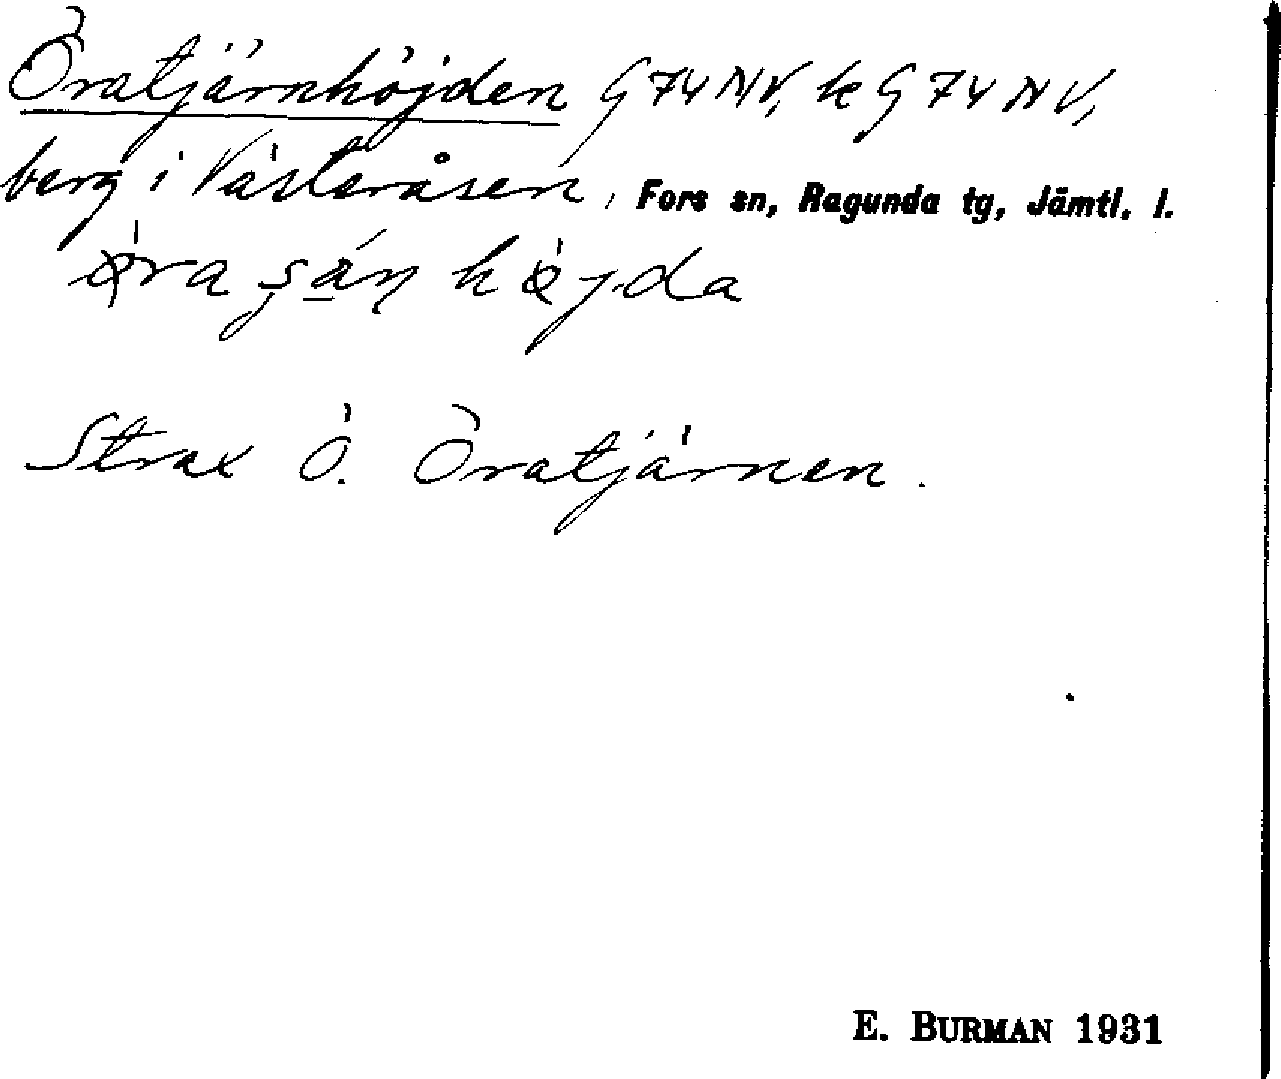 Öratjärnhöjden G74NV, k G74NV,
berg i Västeråsen, Fors sn, Ragunda tg, Jämtl. l.
höjda
Strax Ö. Öratjärnen.
E. BURMAN 1931